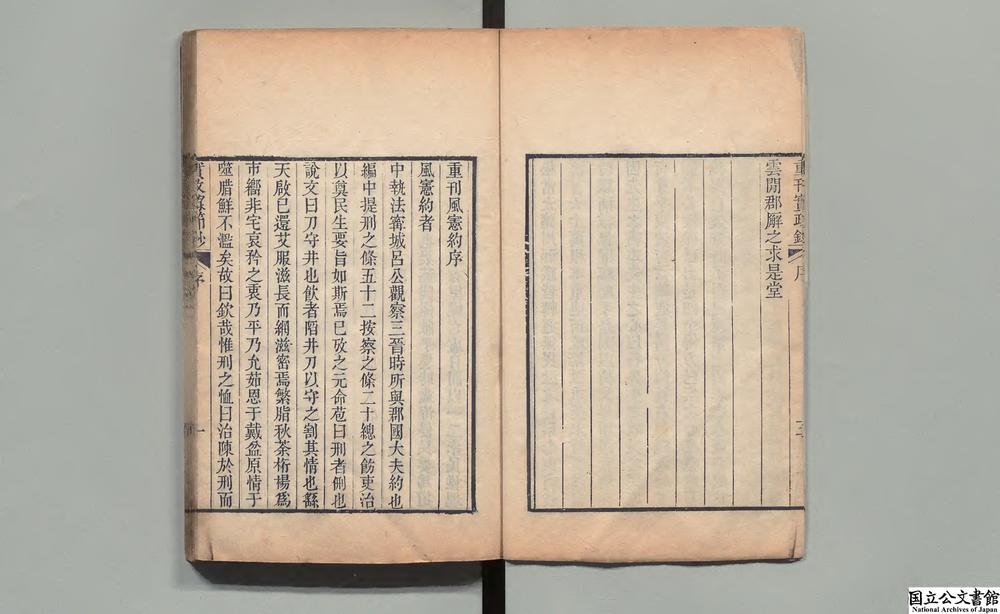 重刊實政錄 序
雲間郡廨之求是堂
重刊風憲約序
風憲約者
中執法寗城呂公觀察三晉時所與郡國大夫約也
編中提刑之條五十二按察之條二十總之飭吏治
以奠民生要旨如斯焉巳攷之元命苞曰刑者侀也
說文曰刀守井也飲者陷井刀以守之割其情也繇
天啟巳還艾服滋長而網滋密焉繁脂秋荼桁楊爲
市嚮非宅哀矜之衷乃平乃允茹恩于戴盆原情于
噬腊鮮不濫矣故曰欽哉惟刑之恤曰治陳於刑而
序
一
国立公文書館
National Archives of Japan